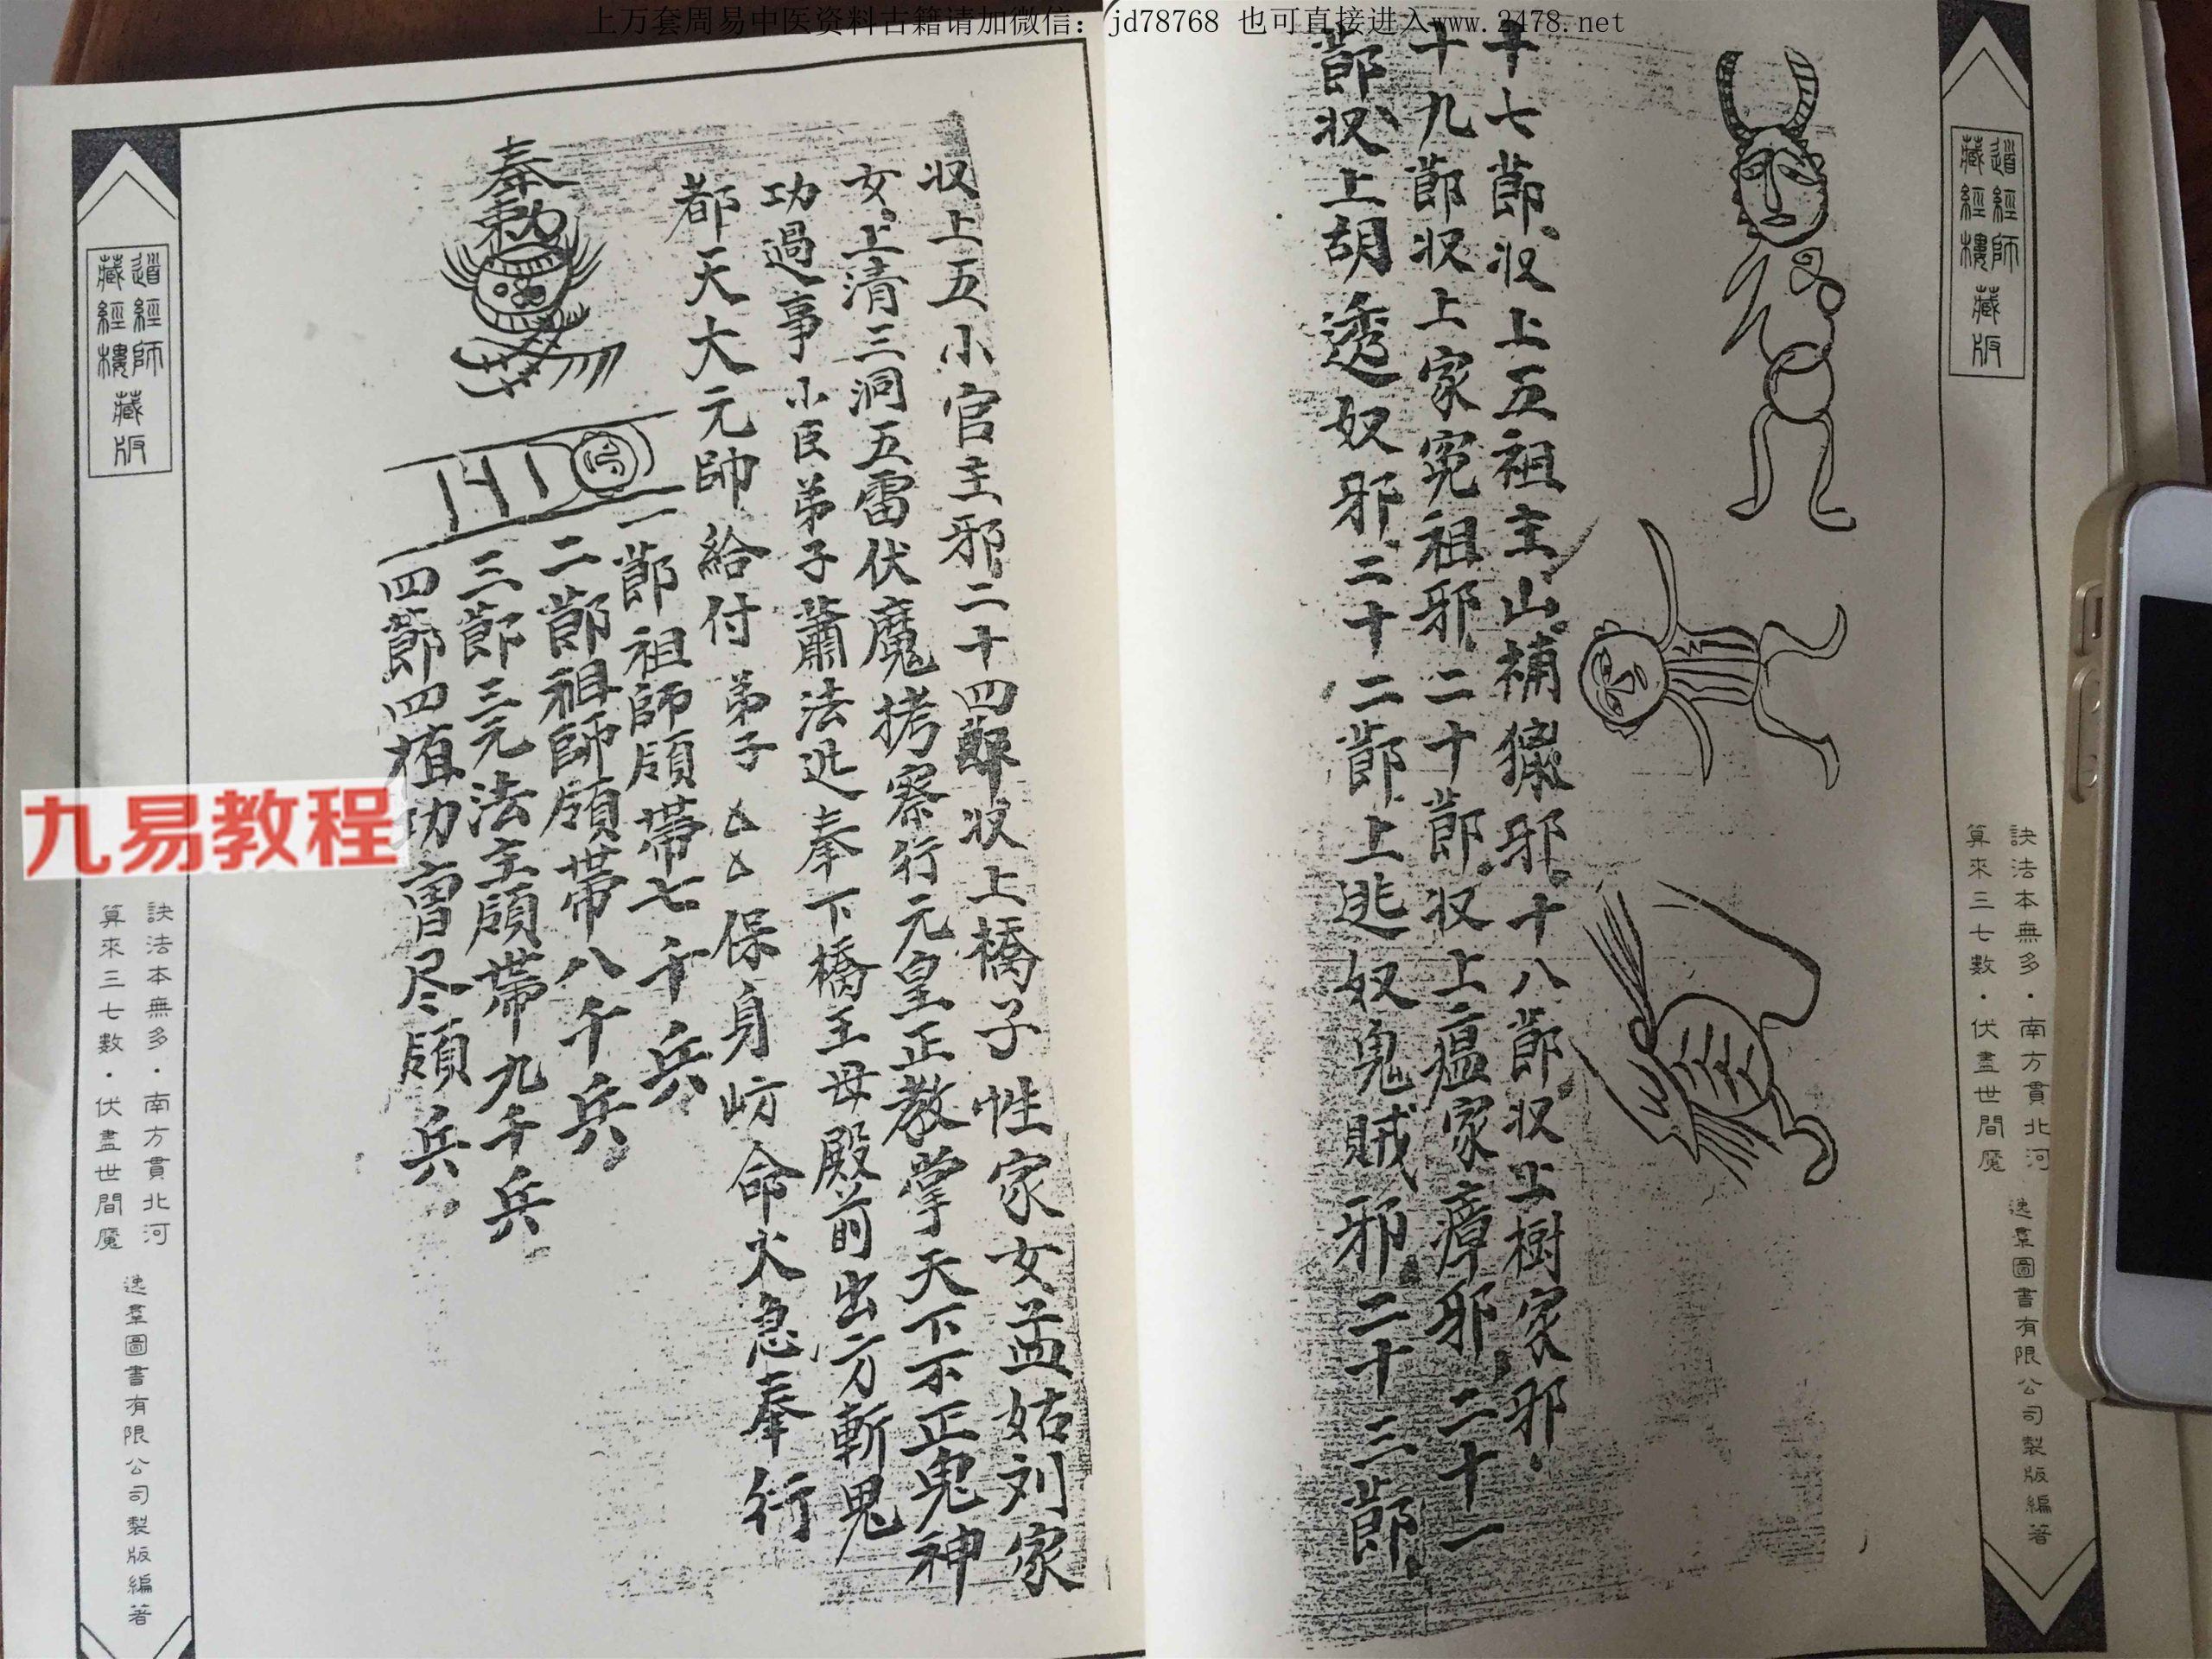 上万套周易中医资料古籍请加微信: jd78768 也可直接进入www.2478.net
道經師
藏經樓
藏版
訣法本無多·南方貫北河
算來三七數·伏盡世間魔
逸羣圖書有限公司製版編著
十七節收上五祖主山補獵邪十八節收上樹家邪
十九節收上家寃祖邪二十節收上瘟家瘴邪二十一
節收上胡透奴邪二十二節上逃奴鬼賊邪二十三節
収上五小官主邪二十四節収上橋子性家女孟姑刘家
女上清三洞五雷伏魔拷察行元皇正教掌天下不正鬼神
功過事小臣弟子蕭法迯奉下橋王母殿前出方斬鬼
都天大元帥給付弟子△△保身命火急奉行
奉勅
一節祖師領帶七千兵
二節祖師領帶八千兵
三節三元法主領帶九千兵
四節四植功曹尽領兵
道經師
藏經樓
藏版
九易教程
訣法本無多·南方貫北河
算來三七數·伏盡世間魔
逸羣圖書有限公司製版編著